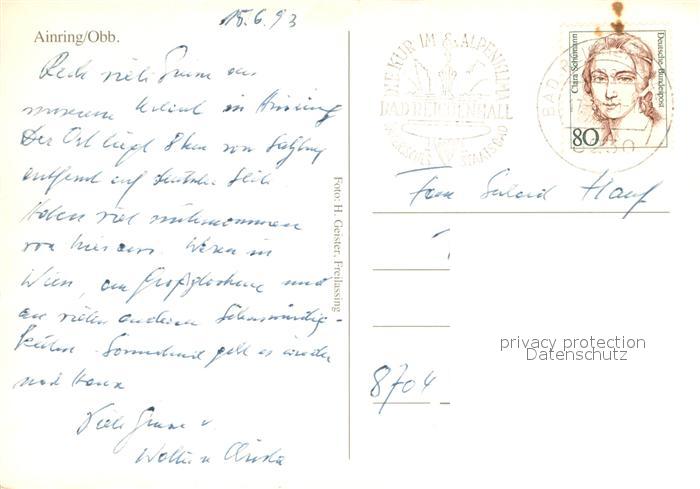 15.6.93
Ainring/Obb.
Recht viele Grüsse aus
unserem Urlaub in Ainring
Der Ort liegt 8 km von Salzburg
entfernt auf deutscher Seite.
Haben viel mitgenommen
von hier aus. Waren in
Wien, am Großglockner und
an vielen anderen Sehenswürdig-
keiten. Sonnabend geht es wieder
nach Hause
Viele Grüsse v.
Walter u. Christa
Foto: H. Geister, Freilassing
KUR IM ALPENKLIMA
BAD REICHENHALL
BAYERISCHES STAATSBAD
BAD
Clara Schumann
Deutsche Bundespost
80
Frau
8704
privacy protection
Datenschutz